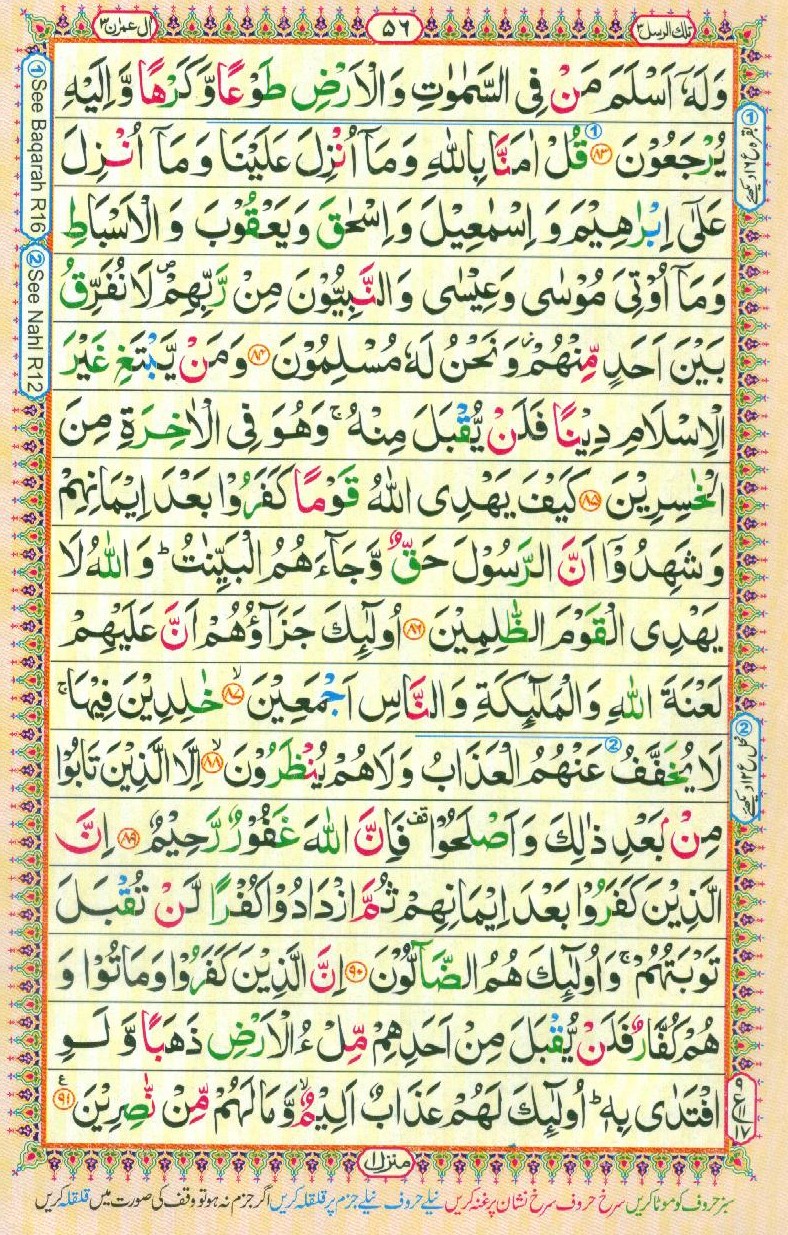 تلك الرسل ٣
٥٦
اٰل عمرٰن ٣
وَلَهٗۤ اَسْلَمَ مَنْ فِی السَّمٰوٰتِ وَالْاَرْضِ طَوْعًا وَّكَرْهًا وَّاِلَیْهِ
یُرْجَعُوْنَ ﴿۸۳﴾ قُلْ اٰمَنَّا بِاللّٰهِ وَمَاۤ اُنْزِلَ عَلَیْنَا وَمَاۤ اُنْزِلَ
عَلٰۤی اِبْرٰهِیْمَ وَ اِسْمٰعِیْلَ وَاِسْحٰقَ وَیَعْقُوْبَ وَ الْاَسْبَاطِ
وَمَاۤ اُوْتِیَ مُوْسٰی وَعِیْسٰی وَالنَّبِیُّوْنَ مِنْ رَّبِّهِمْ ۪ لَا نُفَرِّقُ
بَیْنَ اَحَدٍ مِّنْهُمْ ؗ وَنَحْنُ لَهٗ مُسْلِمُوْنَ ﴿۸۴﴾ وَمَنْ یَّبْتَغِ غَیْرَ
الْاِسْلَامِ دِیْنًا فَلَنْ یُّقْبَلَ مِنْهُ ۚ وَهُوَ فِی الْاٰخِرَةِ مِنَ
الْخٰسِرِیْنَ ﴿۸۵﴾ كَیْفَ یَهْدِی اللّٰهُ قَوْمًا كَفَرُوْا بَعْدَ اِیْمَانِهِمْ
وَ شَهِدُوْۤا اَنَّ الرَّسُوْلَ حَقٌّ وَّجَآءَهُمُ الْبَیِّنٰتُ ؕ وَ اللّٰهُ لَا
یَهْدِی الْقَوْمَ الظّٰلِمِیْنَ ﴿۸۶﴾ اُولٰٓئِكَ جَزَآؤُهُمْ اَنَّ عَلَیْهِمْ
لَعْنَةَ اللّٰهِ وَالْمَلٰٓئِكَةِ وَالنَّاسِ اَجْمَعِیْنَ ۙ﴿۸۷﴾ خٰلِدِیْنَ فِیْهَا ۚ
لَا یُخَفَّفُ عَنْهُمُ الْعَذَابُ وَلَا هُمْ یُنْظَرُوْنَ ۙ﴿۸۸﴾ اِلَّا الَّذِیْنَ تَابُوْا
مِنْۢ بَعْدِ ذٰلِكَ وَ اَصْلَحُوْا ۫ فَاِنَّ اللّٰهَ غَفُوْرٌ رَّحِیْمٌ ﴿۸۹﴾ اِنَّ
الَّذِیْنَ كَفَرُوْا بَعْدَ اِیْمَانِهِمْ ثُمَّ ازْدَادُوْا كُفْرًا لَّنْ تُقْبَلَ
تَوْبَتُهُمْ ۚ وَ اُولٰٓئِكَ هُمُ الضَّآلُّوْنَ ﴿۹۰﴾ اِنَّ الَّذِیْنَ كَفَرُوْا وَمَاتُوْا وَ
هُمْ كُفَّارٌ فَلَنْ یُّقْبَلَ مِنْ اَحَدِهِمْ مِّلْءُ الْاَرْضِ ذَهَبًا وَّ لَوِ
افْتَدٰی بِهٖ ؕ اُولٰٓئِكَ لَهُمْ عَذَابٌ اَلِیْمٌ ۙ وَّمَا لَهُمْ مِّنْ نّٰصِرِیْنَ ﴿۹۱﴾ ع
منزل ۱
سبز حروف کو موٹا کریں سرخ حروف سرخ نشان پر غنہ کریں نیلے حروف نیلے جزم پر قلقلہ کریں اگر جزم نہ ہو تو وقف کی صورت میں قلقلہ کریں
1 See Baqarah R16
2 See Nahl R12
1 بقرہ ع ۱۶ دیکھئے
2 نحل ع ۱۲ دیکھئے
۹
ع ۱۱
۱۷